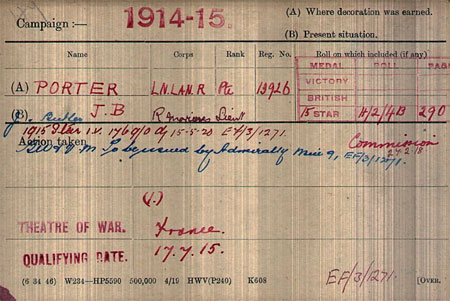 Campaign :— 1914-15. (A) Where decoration was earned.
(B) Present situation.
Name Corps Rank Reg. No. Roll on which included (if any)
MEDAL ROLL PAGE
(A) PORTER L.N.LAN.R Pte 13926
VICTORY
BRITISH
(B) J.B Lieut
15 STAR H/2/4B 290
1915 Star i.v. 15-5-20 EF/3/1271.
Action taken Commission
B.W.V.M To be issued by Admiralty EF/3/1271.
(1.)
THEATRE OF WAR. France.
QUALIFYING DATE. 17.7.15.
(6 34 46) W234—HP5590 500,000 4/19 HWV(P240) K608 [OVER.
EF/3/1271.